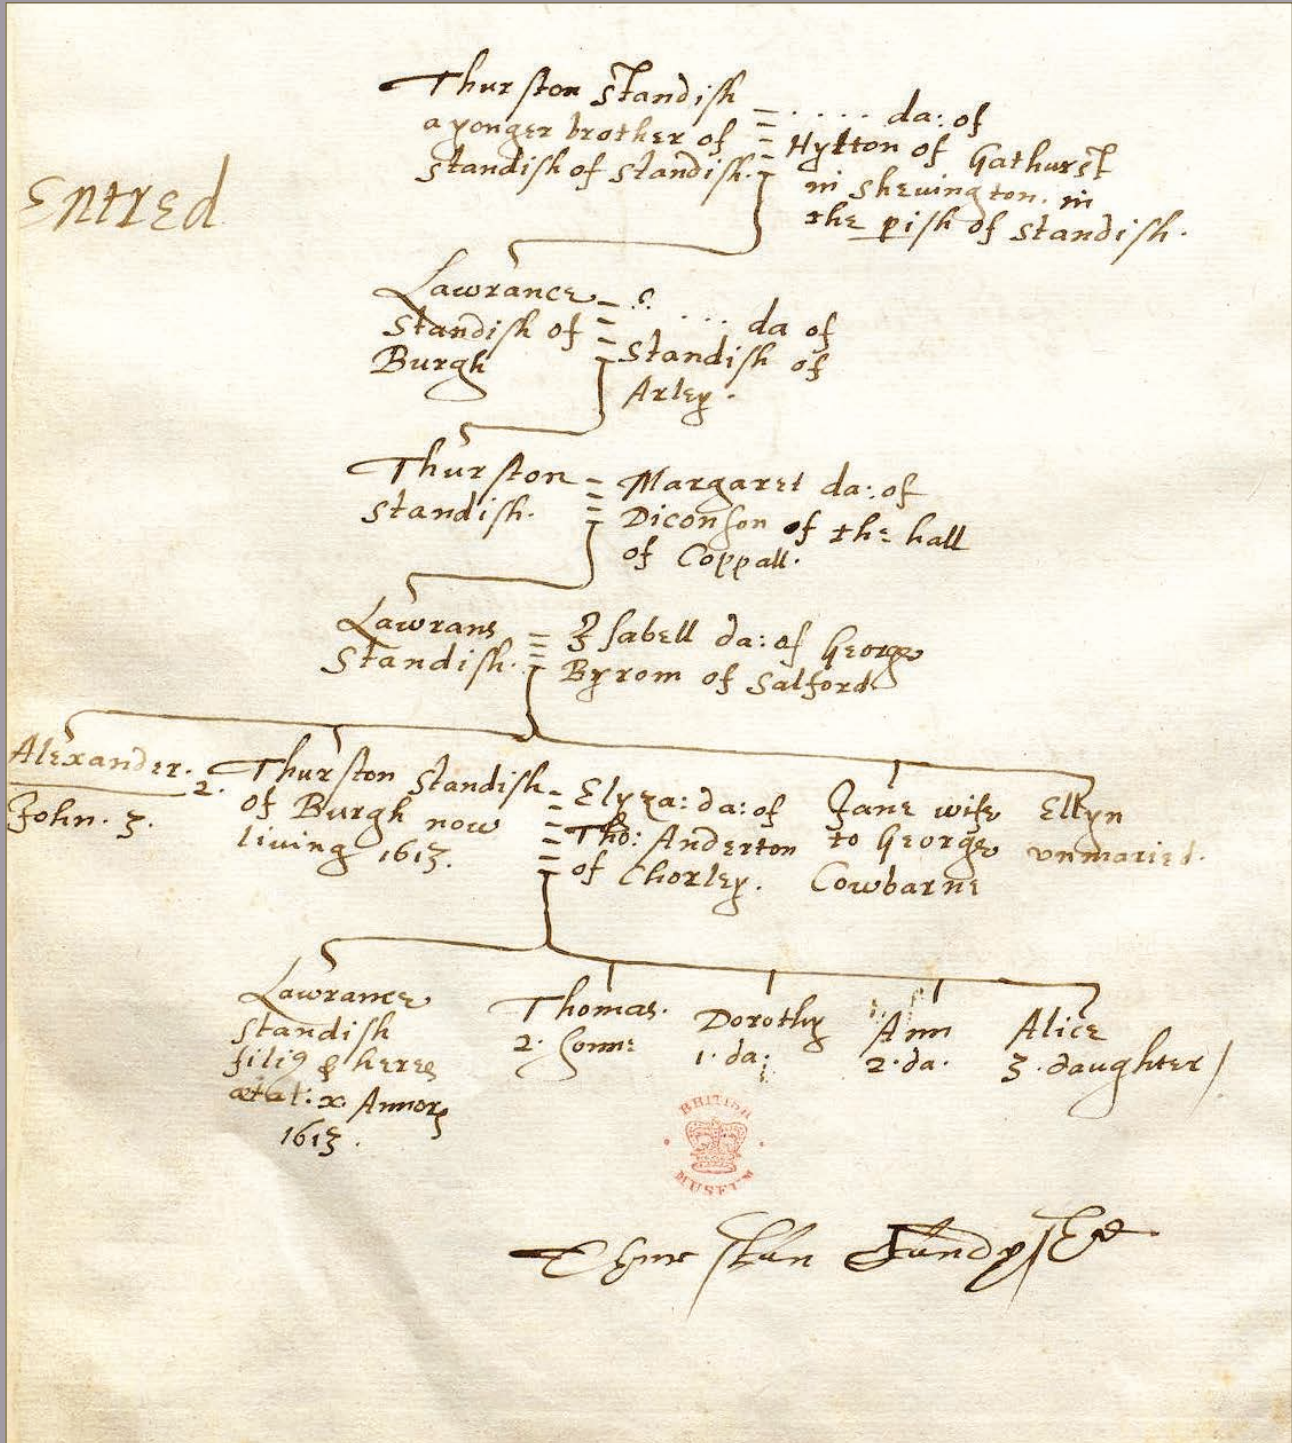 Entred
Thurston Standish
a yonger brother of
Standish of Standish.
. . . . . da: of
Hylton of Gathurst
in Shevington. in
the pish of Standish.
Lawrance
Standish of
Burgh
. . . . da of
Standish of
Arley.
Thurston
Standish.
Margaret da: of
Diconson of the hall
of Coppall.
Lawrans
Standish.
Isabell da: of George
Byrom of Salford
Alexander.
John. 3.
2. Thurston Standish
of Burgh now
living 1613.
Elyza: da: of
Tho: Anderton
of Chorley.
Jane wife
to George
Cowbarne
Ellyn
unmaried.
Lawrance
Standish
filiꝯ & heres
ætat: x. Annorꝝ
1613.
Thomas.
2. sonne
Dorothy
1. da:
Ann
2. da.
Alice
3. daughter/
BRITISH
MUSEUM
Thurstan